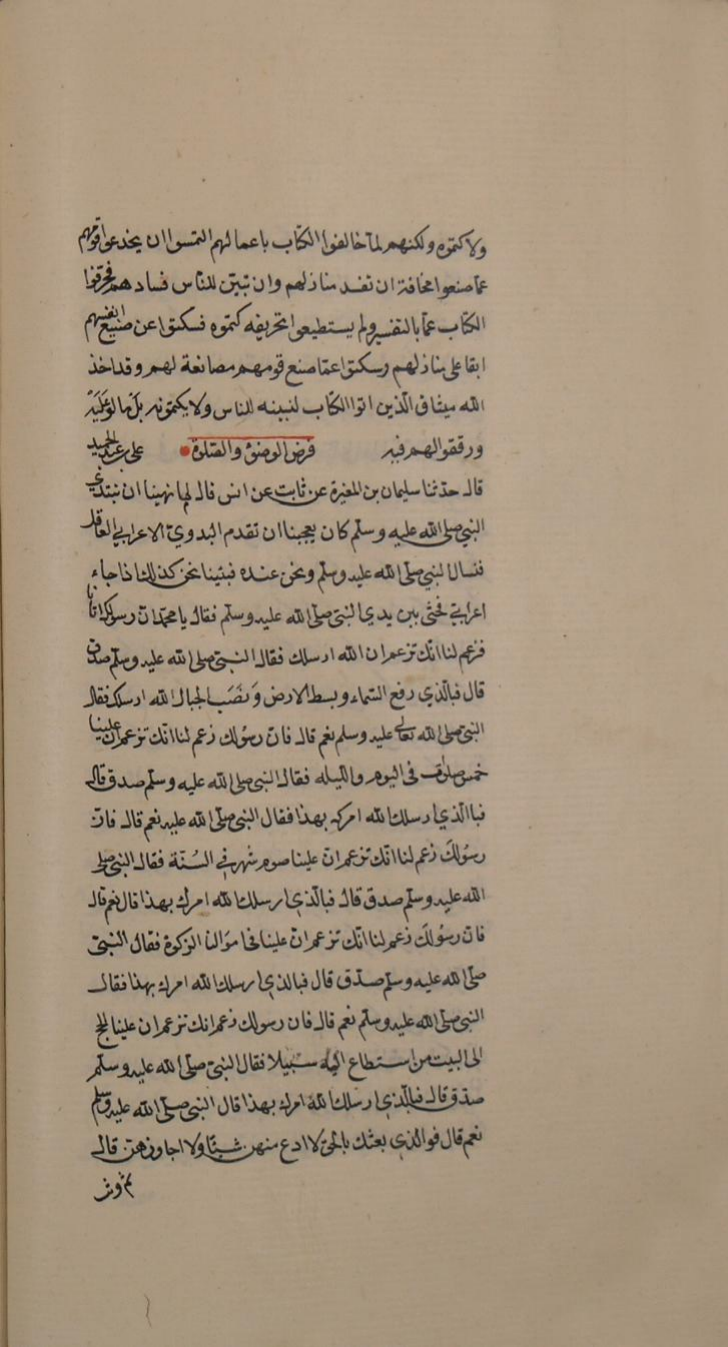 ولا كتموه ولكنهم لما خالفوا الكتاب باعمالهم التمسوا ان يخدعوا قومهم
عما صنعوا مخافة ان تفسد منازلهم وان تبين للناس فسادهم فحرفوا
الكتاب عما بالتفسير ولم يستطيعوا تحريفه كتموه فسكتوا عن صنيع انفسهم
ابقا على منازلهم وسكتوا عما صنع قومهم مصانعة لهم وقد اخذ
الله ميثاق الذين اتوا الكتاب لنبينه للناس ولا يكتمونه بل مالوا عليه
ورققوا لهم فيه فرض الوضوء والصلوة على بن عبد الحميد
قال حدثنا سليمان بن المغيرة عن ثابت عن انس قال لما نهينا ان نبتدئ
النبي صلى الله عليه وسلم كان يعجبنا ان تقدم البدوي الاعرابي العاقل
فنسال النبي صلى الله عليه وسلم ونحن عنده فبينا نحن كذلك اذا جاء
اعرابي فجثى بين يدي النبي صلى الله عليه وسلم فقال يا محمد ان رسولك اتانا
فزعم لنا انك تزعم ان الله ارسلك فقال النبي صلى الله عليه وسلم صدق
قال فبالذي رفع السماء وبسط الارض ونصب الجبال الله ارسلك فقال
النبي صلى الله تعالى عليه وسلم نعم قال فان رسولك زعم لنا انك تزعم ان علينا
خمس صلوات في اليوم والليله فقال النبي صلى الله عليه وسلم صدق قال
فبا الذي ارسلك الله امرك بهذا فقال النبي صلى الله عليه نعم قال فان
رسولك زعم لنا انك تزعم ان علينا صوم شهر في السنة فقال النبي صلى
الله عليه وسلم صدق قال فبالذي ارسلك الله امرك بهذا قال نعم قال
فان رسولك زعم لنا انك تزعم ان علينا في اموالنا الزكوة فقال النبي
صلى الله عليه وسلم صدق قال فبالذي ارسلك الله امرك بهذا فقال
النبي صلى الله عليه وسلم نعم قال فان رسولك زعم انك تزعم ان علينا الحج
الى البيت من استطاع اليه سبيلا فقال النبي صلى الله عليه وسلم
صدق قال فبالذي ارسلك الله امرك بهذا قال النبي صلى الله عليه وسلم
نعم قال فوالذي بعثك بالحق لا ادع منهن شيئا ولا اجاوزهن قال
ثم وثب